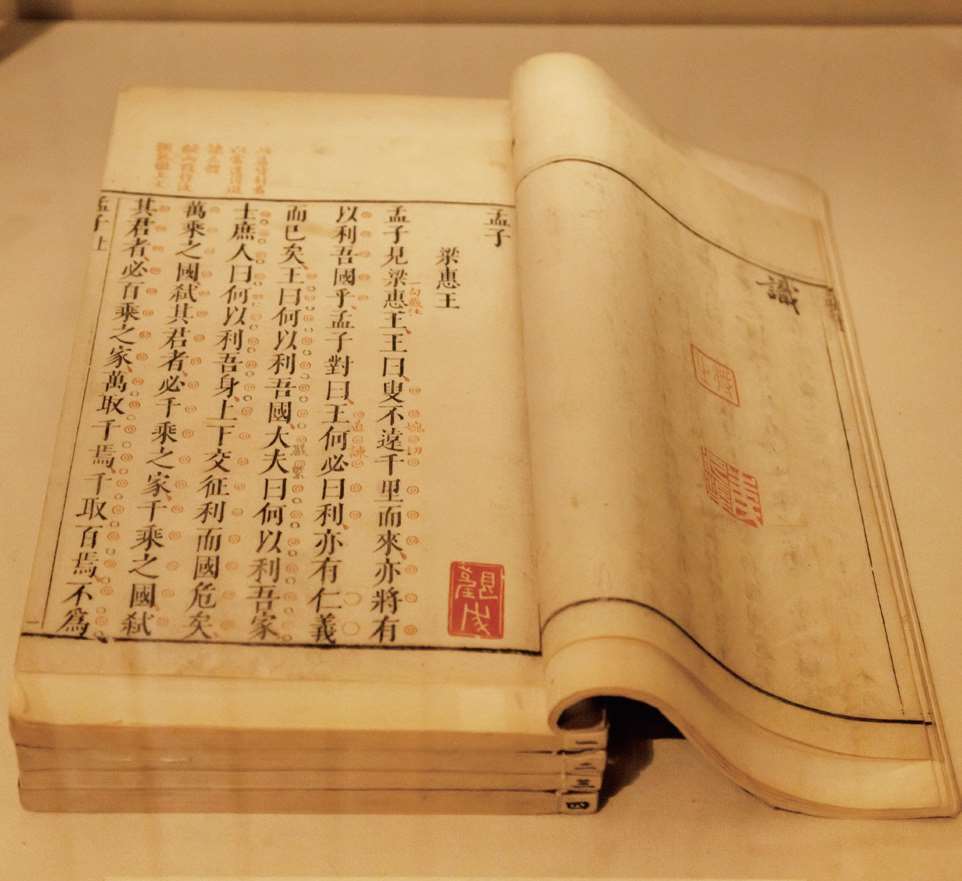 識
孟子
梁惠王
孟子見梁惠王王曰叟不遠千里而來亦將有
以利吾國乎孟子對曰王何必曰利亦有仁義
而已矣王曰何以利吾國大夫曰何以利吾家
士庶人曰何以利吾身上下交征利而國危矣
萬乘之國弒其君者必千乘之家千乘之國弒
其君者必百乘之家萬取千焉千取百焉不爲
孟子上
一
一
二
三
四